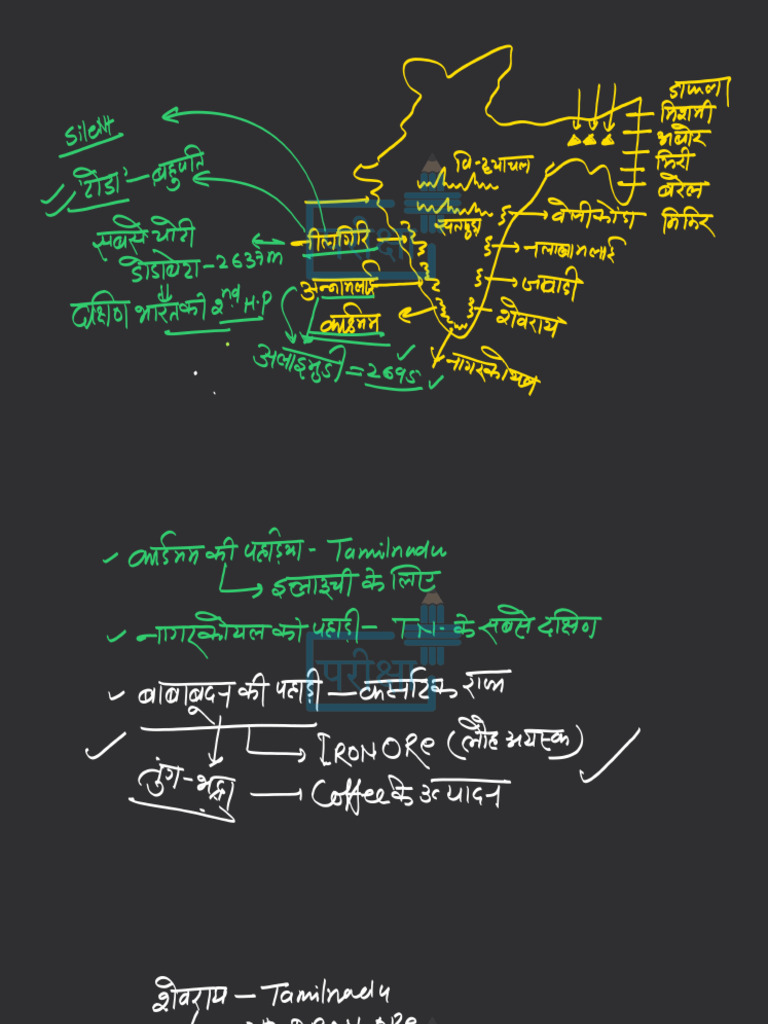 Silent
'टोडा' – बहुपति
सबसे चोटी
डोडाबेटा – 2637m
दक्षिण भारत की 2nd H.P
नीलगिरि
अन्नामलाई
कार्डमम
अलाइमुडी = 2695
विन्ध्याचल
सतपुड़ा
डाफला
मिशमी
अबोर
मिरी
बरेल
मिकिर
वेलीकोंडा
नल्लामलाई
जवादी
शेवराय
नागरकोयल
कार्डमम की पहाड़िया – Tamilnadu
इलाइची के लिए
नागरकोयल को पहाड़ी – TN. के सबसे दक्षिण
परीक्षा
बाबाबूदन की पहाड़ी – कर्नाटक राज्य
IRON ORe (लौह अयस्क)
तुंग-भद्रा
Coffee के उत्पादन
शेवराय – Tamilnadu